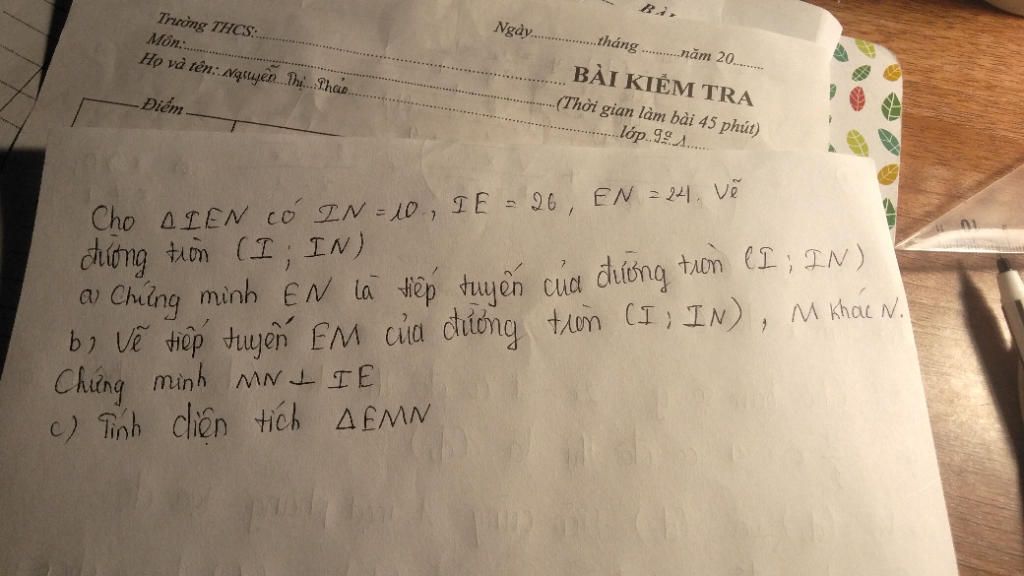 Bài
Trường THCS:
Ngày.............tháng..........năm 20.......
Môn:
BÀI KIỂM TRA
Họ và tên: Nguyễn Thị Thảo
(Thời gian làm bài 45 phút)
lớp 9
Điểm
Cho ΔIEN có IN = 10, IE = 26, EN = 24. Vẽ
đường tròn (I ; IN)
a) Chứng minh EN là tiếp tuyến của đường tròn (I ; IN)
b) Vẽ tiếp tuyến EM của đường tròn (I ; IN), M khác N.
Chứng minh MN ⊥ IE
c) Tính diện tích ΔEMN